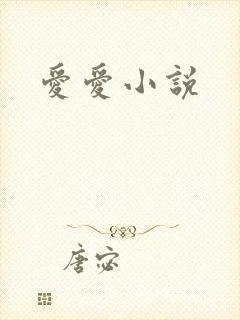 愛愛小説
唐宓